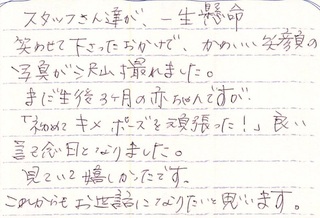 スタッフさん達が、一生懸命
笑わせて下さったおかげで、かわいい笑顔の
写真が沢山撮れました。
まだ生後3ヶ月の赤ちゃんですが
「初めてキメポーズを頑張った!」良い
記念日となりました。
見ていて嬉しかったです。
これからもお世話になりたいと思います。